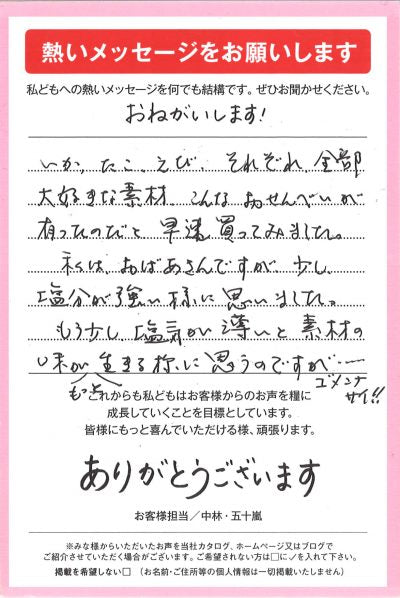 熱いメッセージをお願いします
私どもへの熱いメッセージを何でも結構です。ぜひお聞かせください。
おねがいします!
いか、たこ、えび、それぞれ、全部
大好きな素材、こんなおせんべいが
有ったのだと早速買ってみました。
私は、おばあさんですが、少し、
塩分が強い様に思いました。
もう少し、塩気がい薄いと素材の
味がもっと生きる様に思うのですが……
ゴメンナサイ!!
これからも私どもはお客様からのお声を糧に
成長していくことを目標としています。
皆様にもっと喜んでいただける様、頑張ります。
ありがとうございます
お客様担当／中林・五十嵐
※みな様からいただいたお声を当社カタログ、ホームページ又はブログで
ご紹介させていただく場合がございます。ご希望されない方は□に✓を入れて下さい。
掲載を希望しない□ (お名前・ご住所等の個人情報は一切掲載いたしません)